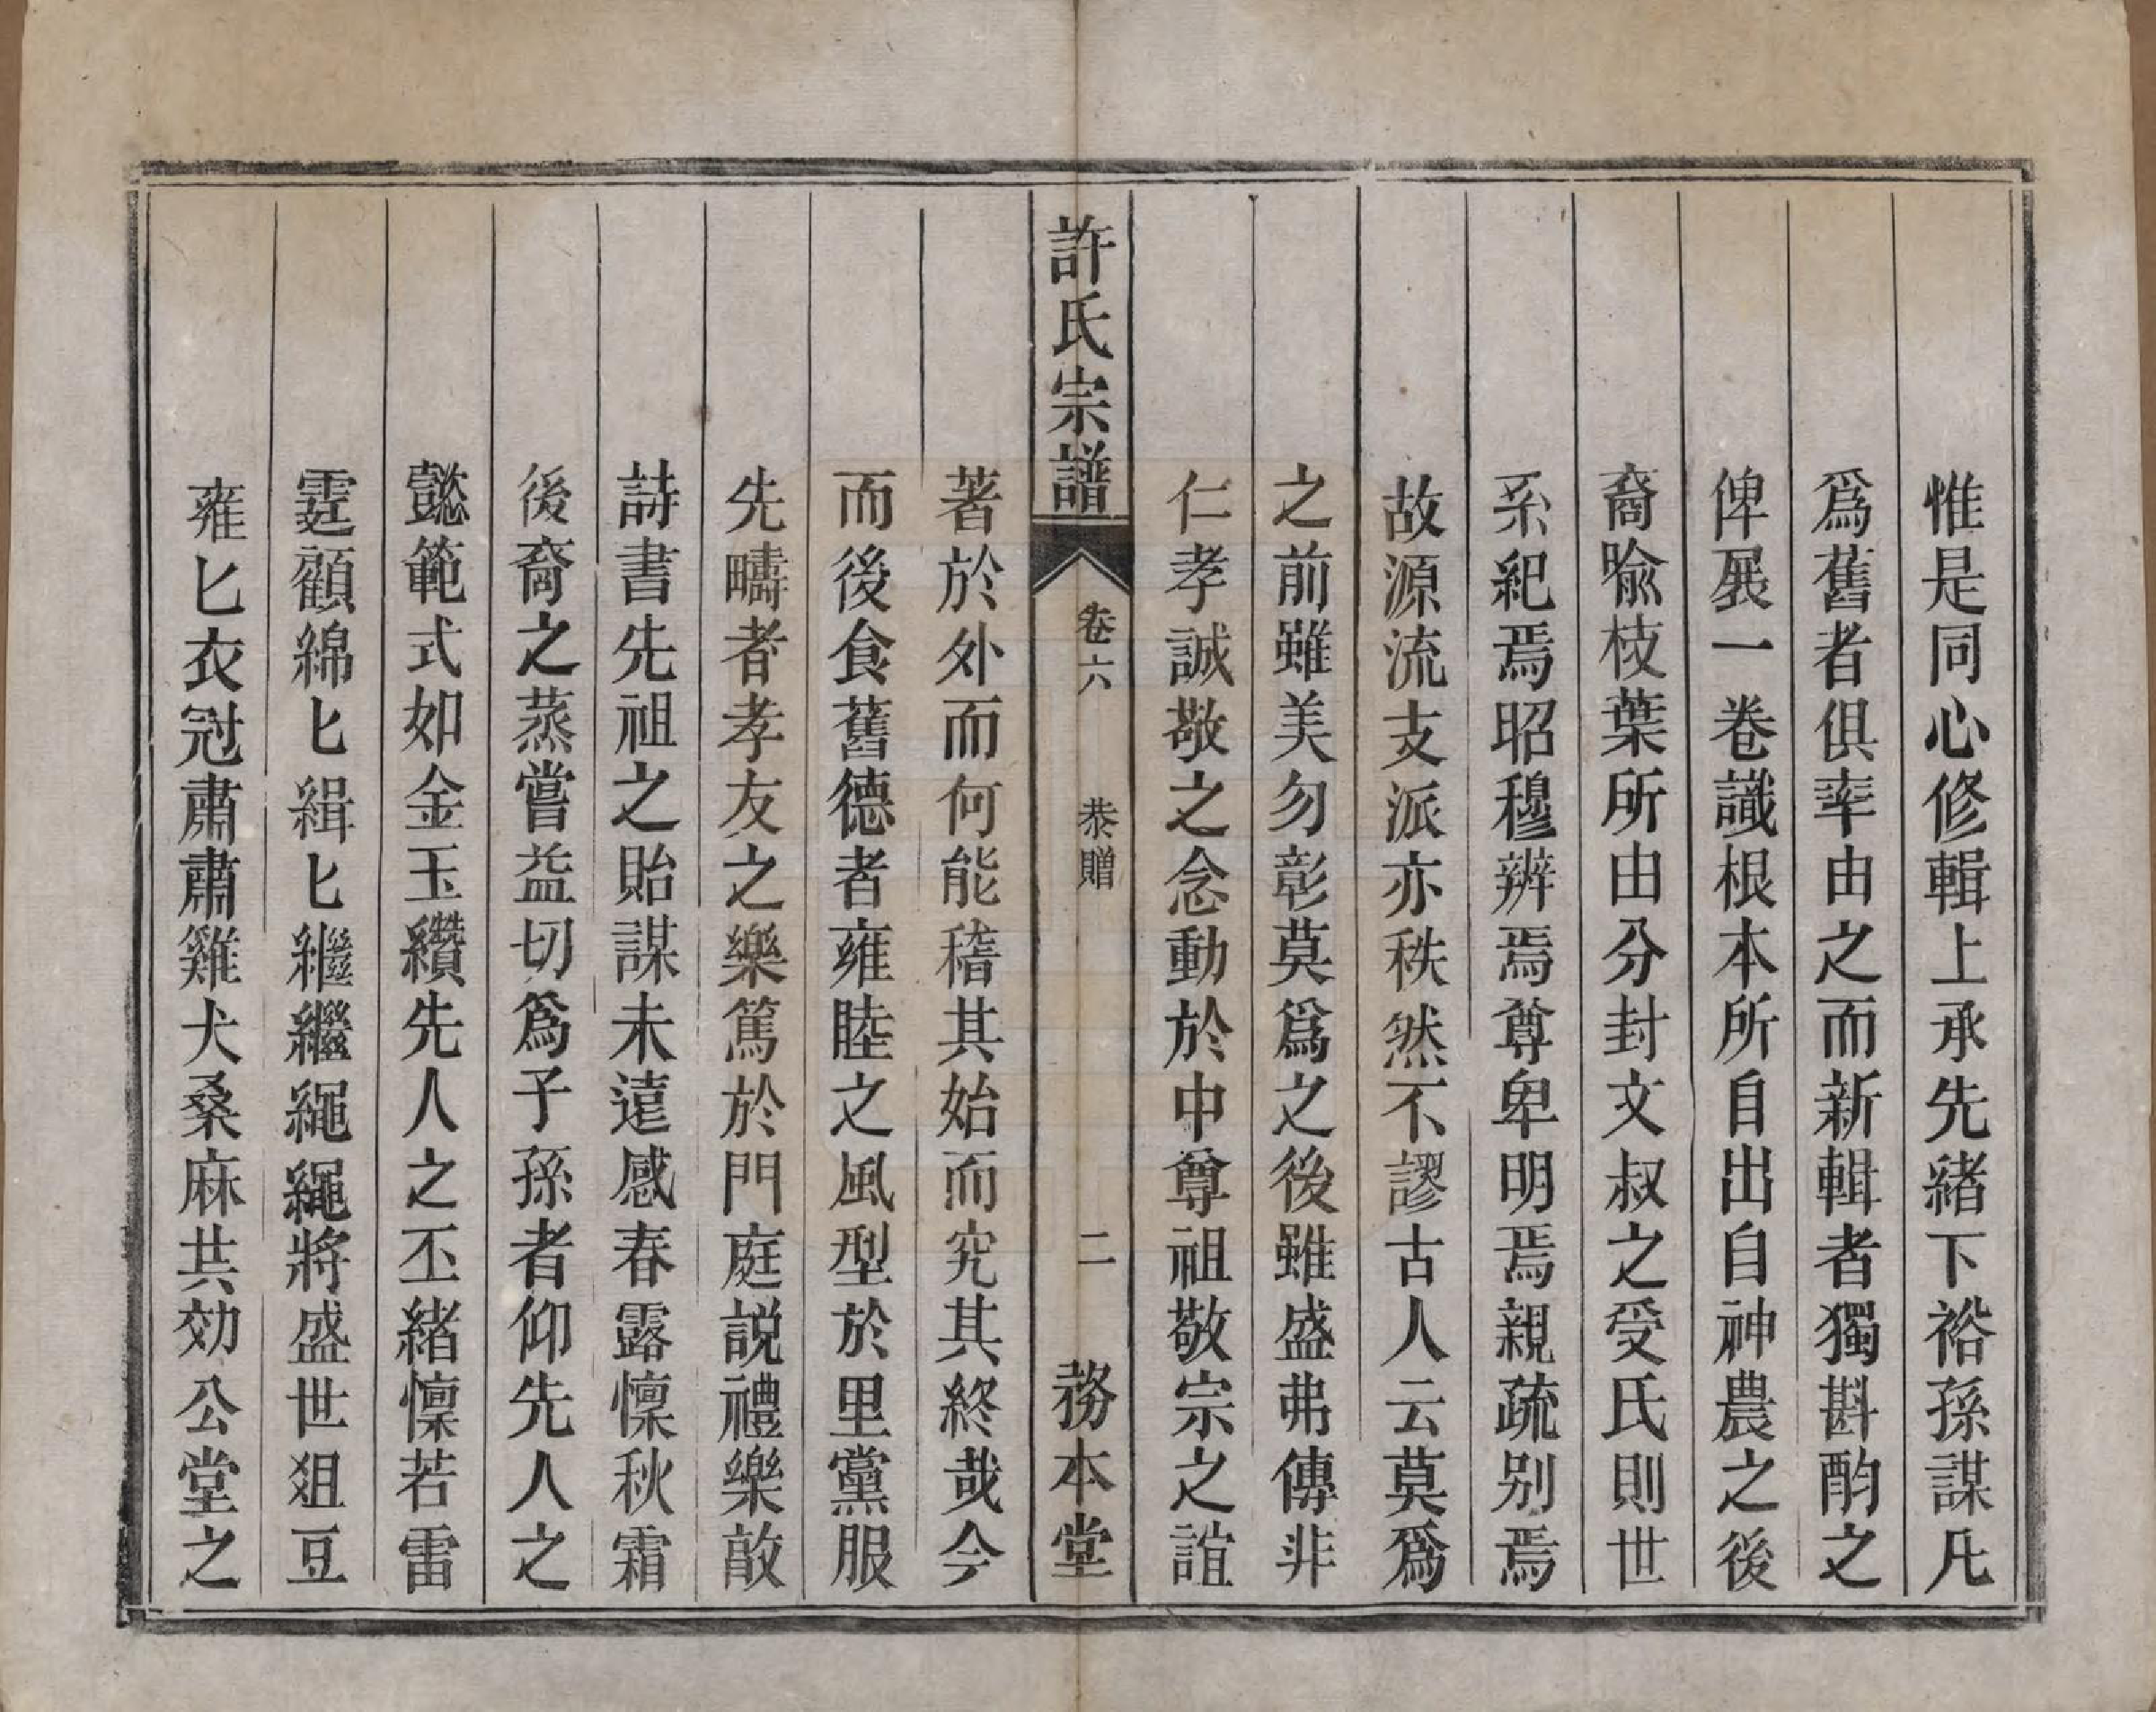 惟是同心修輯上承先緒下裕孫謀凡
爲舊者俱率由之而新輯者獨斟酌之
俾展一卷識根本所自出自神農之後
裔喻枝葉所由分封文叔之受氏則世
系紀焉昭穆辨焉尊卑明焉親疏別焉
故源流支派亦秩然不謬古人云莫爲
之前雖美勿彰莫爲之後雖盛弗傳非
仁孝誠敬之念動於中尊祖敬宗之誼
許氏宗譜
卷六
恭贈
二
務本堂
著於外而何能稽其始而究其終哉今
而後食舊德者雍睦之風型於里黨服
先疇者孝友之樂篤於門庭説禮樂敦
詩書先祖之貽謀未遠感春露懍秋霜
後裔之蒸嘗益切爲子孫者仰先人之
懿範式如金玉纘先人之丕緒懍若雷
霆顧綿匕緝匕繼繼繩繩將盛世俎豆
雍匕衣冠肅肅雞犬桑麻共効公堂之